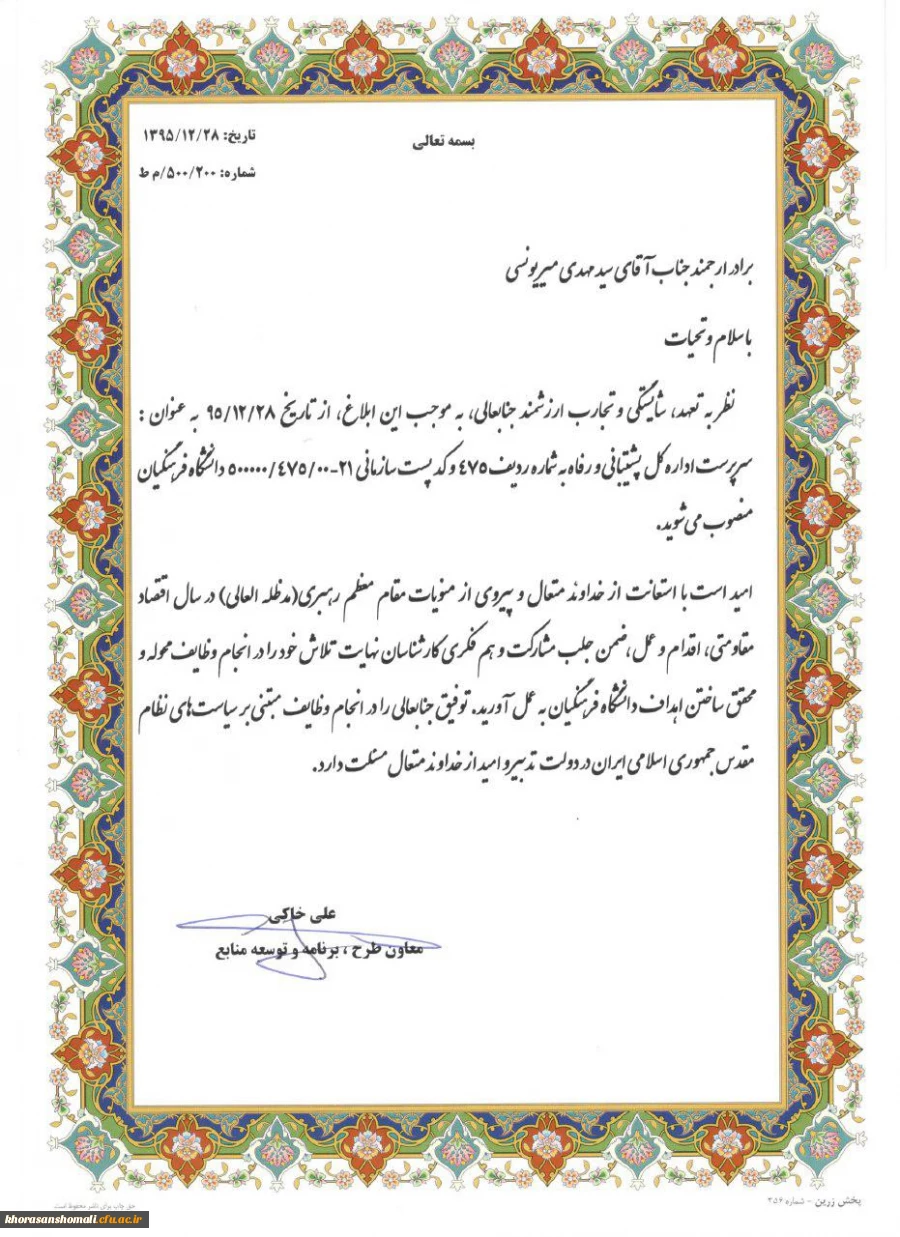 بسمه تعالی
تاریخ: ۱۳۹۵/۱۲/۲۸
شماره: ۵۰۰/۲۰۰/م ط
برادر ارجمند جناب آقای سید مهدی میریونسی
با سلام و تحیات
نظر به تعهد، شایستگی و تجارب ارزشمند جنابعالی، به موجب این ابلاغ، از تاریخ ۹۵/۱۲/۲۸ به عنوان :
سرپرست اداره کل پشتیبانی و رفاه به شماره ردیف ۴۷۵ و کد پست سازمانی ۲۱-۵۰۰۰۰۰/۴۷۵/۰۰ دانشگاه فرهنگیان
منصوب می شوید.
امید است با استعانت از خداوند متعال و پیروی از منویات مقام معظم رهبری(مدظله العالی) در سال اقتصاد
مقاومتی، اقدام و عمل، ضمن جلب مشارکت و هم فکری کارشناسان نهایت تلاش خود را در انجام وظایف محوله و
محقق ساختن اهداف دانشگاه فرهنگیان به عمل آورید. توفیق جنابعالی را در انجام وظایف مبتنی بر سیاست های نظام
مقدس جمهوری اسلامی ایران در دولت تدبیر و امید از خداوند متعال مسئلت دارد.
علی خاکی
معاون طرح ، برنامه و توسعه منابع
پخش زرین - شماره ۳۵۴
حق چاپ برای ناشر محفوظ است
khorasanshomali.cfu.ac.ir